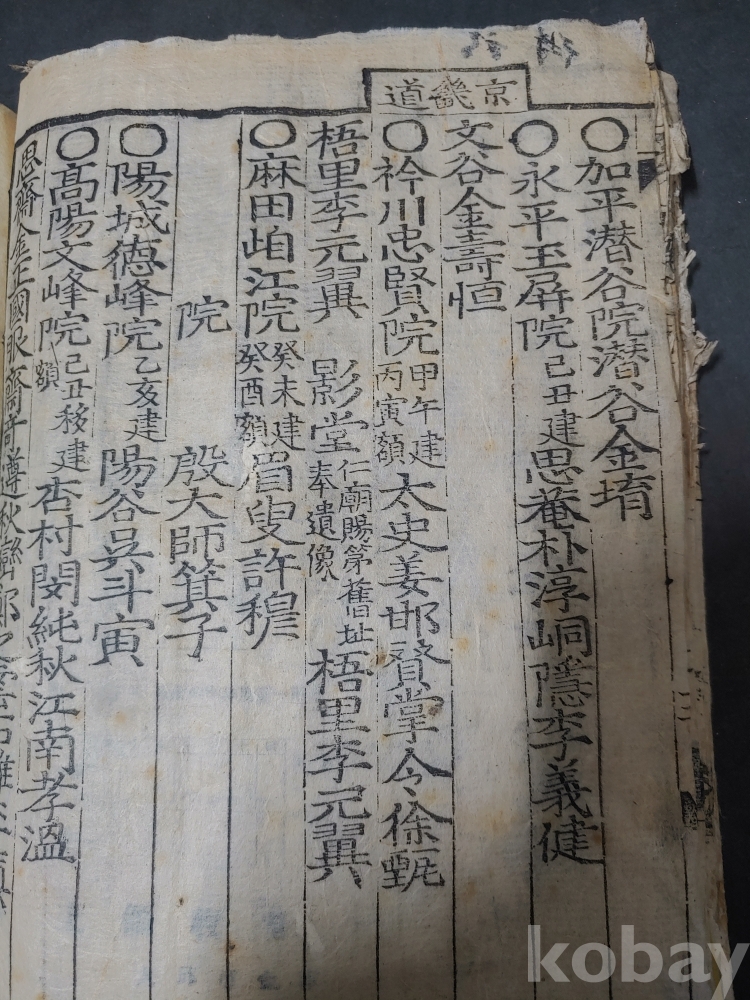 京畿道
○加平潜谷院潜谷金堉
○永平玉屛院己丑建思菴朴淳峒隱李義健
文谷金壽恒
○衿川忠賢院甲午建丙寅額太史姜邯賛掌令徐甄
梧里李元翼 影堂仁廟賜第舊址奉遺像梧里李元翼
○麻田岶江院癸未建癸酉額眉叟許穆
院 殷大師箕子
○陽城德峰院乙亥建陽谷吳斗寅
○髙陽文峰院己丑移建額杏村閔純秋江南孝溫
思齋金正國服齋奇遵秋巒鄭之雲
kobay